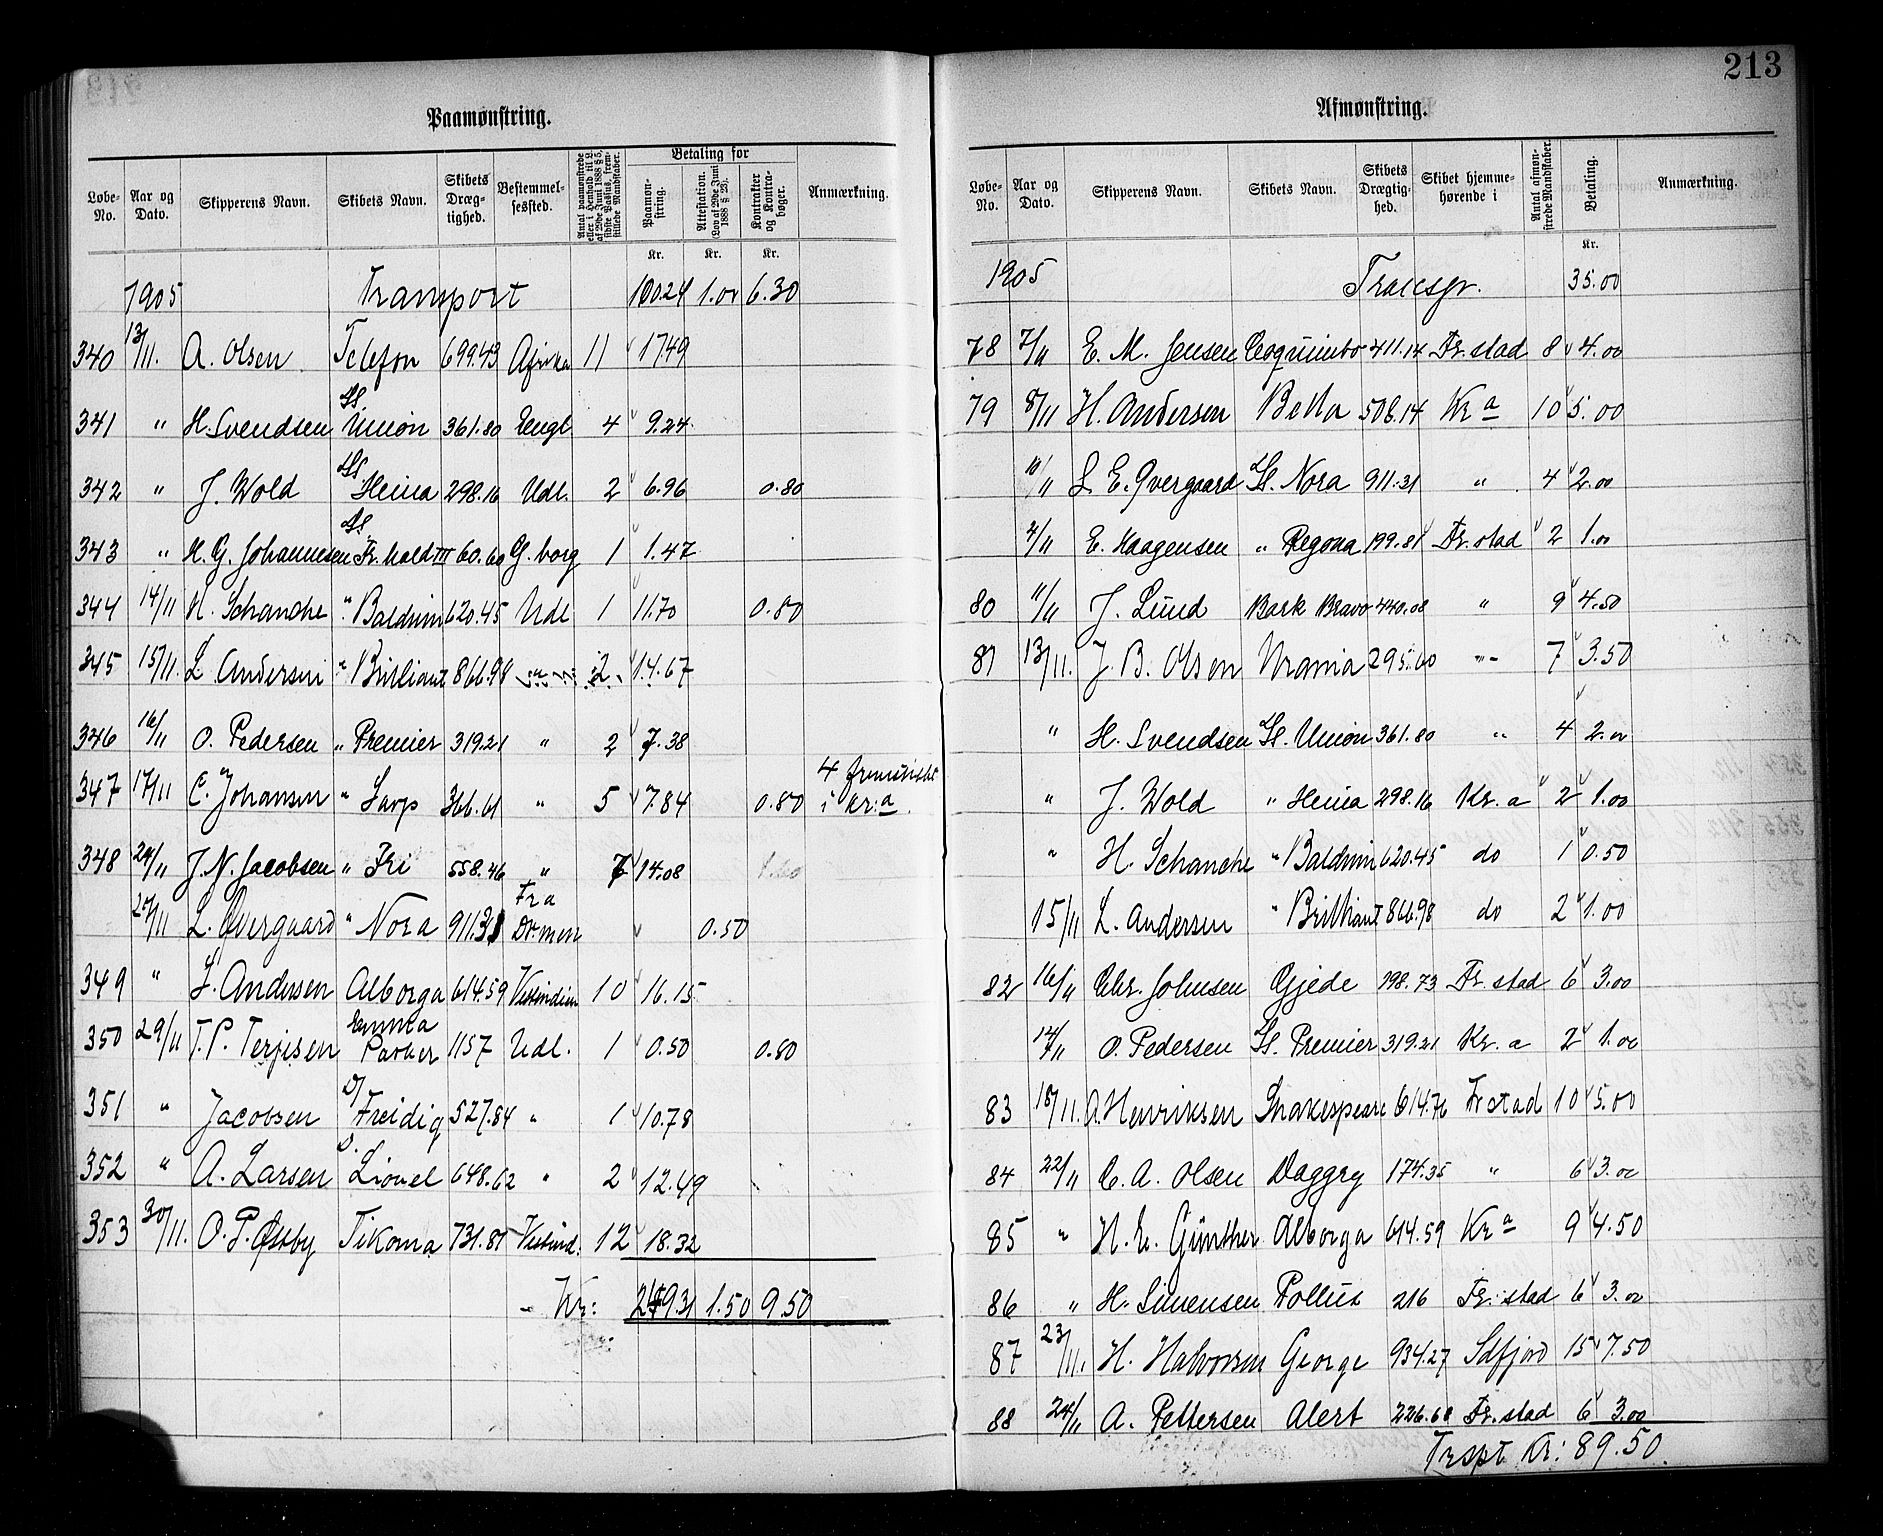 213
Paamønstring.
Løbe-No. Aar og Dato. Skipperens Navn. Skibets Navn. Skibets Drægtighed. Bestemmelsessted. Antal paamønstrede eller i Henhold til L. af 29de Juni 1888 § 5, sidste Passus, fremstillede Mandskaber. Betaling for Paamønstring. Attestation. (Lov af 29de Juni 1888 § 23). Kontrakter og Kontrabøger. Anmærkning.
Kr. Kr. Kr.
1905 Transport 100.24 1.00 6.30
340 13/11. A. Olsen Telefon 699.43 Afrika 11 17.49
341 " H. Svendsen SS Union 361.80 Engl 4 9.24
342 " J. Wold SS Heina 298.16 Udl. 2 6.96 0.80
343 " H. G. Johannesen SS Fr.hald III 60.60 G.borg 1 1.47
344 14/11 H. Schanche " Baldwin 620.45 Udl 1 11.70 0.80
345 15/11. L. Andersen " Brilliant 866.98 2 14.67
346 16/11 O. Pedersen " Premier 319.21 " 2 7.38
347 17/11 C. Johansen " Sarp 366.61 " 5 7.84 0.80 4 fremstillet i Kr:a.
348 24/11 J. N. Jacobsen " Fri 558.46 " 7 14.08 1.60
27/11 L. Øvergaard " Nora 911.31 Fra Dr.men 0.50
349 " L. Andersen Alborga 614.59 Vestindien 10 16.15
350 29/11 T. P. Terjesen Emma Parker 1157 Udl. 1 0.50 0.80
351 " Jacobsen D/ Freidig 527.84 " 1 10.78
352 " A. Larsen D. Lionel 648.62 " 2 12.49
353 30/11. O. P. Østby Tikoma 731.81 Vestind. 12 18.32
Kr: 249.31 1.50 9.50
Afmønstring.
Løbe-No. Aar og Dato. Skipperens Navn. Skibets Navn. Skibets Drægtighed. Skibet hjemmehørende i Antal afmønstrede Mandskaber. Betaling. Anmærkning.
Kr.
1905 Transp. 35.00
78 7/11 E. M. Jensen Coquimbo 411.14 Fr.stad 8 4.00
79 8/11 H. Andersen Bella 508.14 Kr a 10 5.00
10/11 L E. Øvergaard SS. Nora 911.31 " 4 2.00
4/11 E. Haagensen " Regona 199.81 Fr.stad 2 1.00
80 11/11 J. Lund Bark Bravo 440.08 " 9 4.50
81 13/11. J. B. Olsen Urania 295.60 " 7 3.50
" H. Svendsen SS. Union 361.80 " 4 2.00
" J. Wold " Heina 298.16 Kr. a 2 1.00
" H. Schanche " Baldwin 620.45 do 1 0.50
15/11 L. Andersen " Brilliant 866.98 do 2 1.00
82 16/11 Chr. Johnsen Gjede 198.73 Fr.stad 6 3.00
17/11 O. Pedersen SS. Premier 319.21 Kr. a 2 1.00
83 18/11. A. Henriksen Shakespeare 614.76 Fr stad 10 5.00
84 22/11 C. A. Olsen Daggry 174.35 " 6 3.00
85 " H. E. Günther Alborga 614.59 Kr a 9 4.50
86 " H. Simensen Pollux 216 Fr.stad 6 3.00
87 23/11. H. Halvorsen George 934.27 Sdfjord 15 7.50
88 24/11 A. Pettersen Alert 226.68 Fr.stad 6 3.00
Trspt Kr: 89.50.